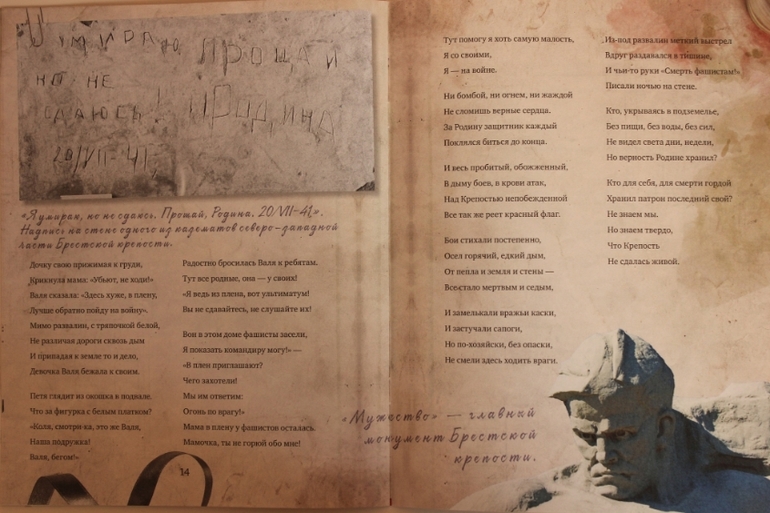 УМИРАЮ ПРОЩАЙ
НО НЕ
СДАЮСЬ! РОДИНА
20/VII-41
«Я умираю, но не сдаюсь. Прощай, Родина. 20/VII-41».
Надпись на стене одного из казематов северо-западной
части Брестской крепости.
Дочку свою прижимая к груди,
Крикнула мама: «Убьют, не ходи!»
Валя сказала: «Здесь хуже, в плену,
Лучше обратно пойду на войну».
Мимо развалин, с тряпочкой белой,
Не различая дороги сквозь дым
И припадая к земле то и дело,
Девочка Валя бежала к своим.
Петя глядит из окошка в подвале.
Что за фигурка с белым платком?
«Коля, смотри-ка, это же Валя,
Наша подружка!
Валя, бегом!»
Радостно бросилась Валя к ребятам.
Тут все родные, она — у своих!
«Я ведь из плена, вот ультиматум!
Вы не сдавайтесь, не слушайте их!
Вон в этом доме фашисты засели,
Я показать командиру могу!» —
«В плен приглашают?
Чего захотели!
Мы им ответим:
Огонь по врагу!»
Мама в плену у фашистов осталась.
Мамочка, ты не горюй обо мне!
14
Тут помогу я хоть самую малость,
Я со своими,
Я — на войне.
Ни бомбой, ни огнем, ни жаждой
Не сломишь верные сердца.
За Родину защитник каждый
Поклялся биться до конца.
И весь пробитый, обожженный,
В дыму боев, в крови атак,
Над Крепостью непобежденной
Все так же реет красный флаг.
Бои стихали постепенно,
Осел горячий, едкий дым,
От пепла и земля и стены —
Все стало мертвым и седым,
И замелькали вражьи каски,
И застучали сапоги,
Но по-хозяйски, без опаски,
Не смели здесь ходить враги.
Из-под развалин меткий выстрел
Вдруг раздавался в тишине,
И чьи-то руки «Смерть фашистам!»
Писали ночью на стене.
Кто, укрываясь в подземелье,
Без пищи, без воды, без сил,
Не видел света дни, недели,
Но верность Родине хранил?
Кто для себя, для смерти гордой
Хранил патрон последний свой?
Не знаем мы.
Но знаем твердо,
Что Крепость
Не сдалась живой.
«Мужество» — главный
монумент Брестской
крепости.